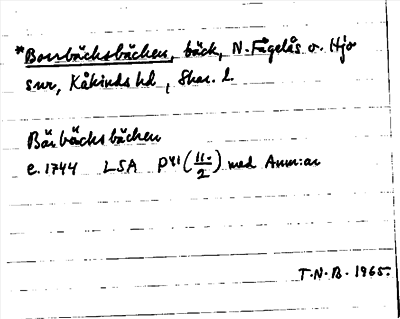 *Borrbäcksbäcken, bäck, N. Fågelås o. Hjo
snr, Kåkinds hd, Skar. l.
Bärbäcksbäcken
e. 1744 LSA P41 (11:2) med Anm:ar
T.N.B. 1965